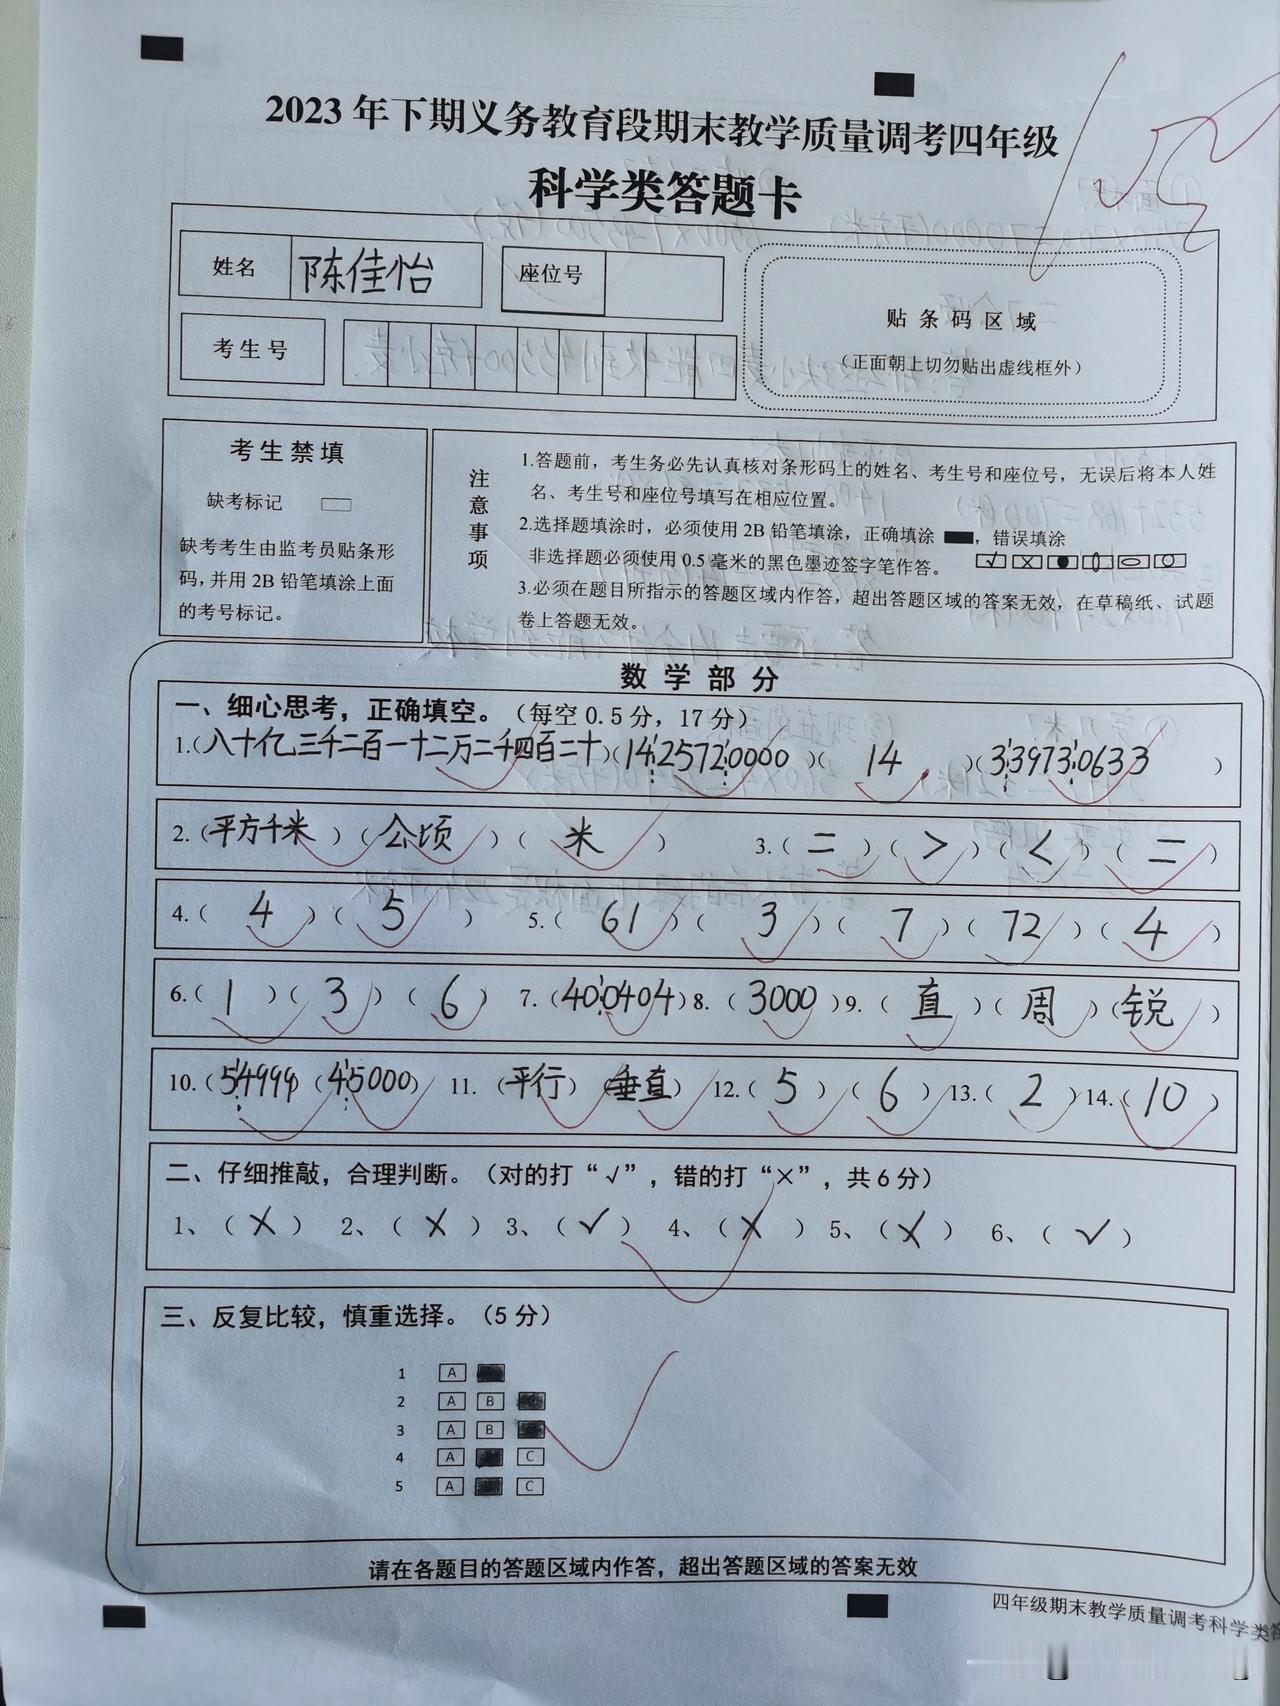 2023年下期义务教育段期末教学质量调考四年级
科学类答题卡
姓名 陈佳怡 座位号
考生号
贴条码区域
（正面朝上切勿贴出虚线框外）
考生禁填
缺考标记
缺考考生由监考员贴条形
码，并用2B铅笔填涂上面
的考号标记。
注意事项
1.答题前，考生务必先认真核对条形码上的姓名、考生号和座位号，无误后将本人姓
名、考生号和座位号填写在相应位置。
2.选择题填涂时，必须使用2B铅笔填涂，正确填涂 ，错误填涂
非选择题必须使用0.5毫米的黑色墨迹签字笔作答。
3.必须在题目所指示的答题区域内作答，超出答题区域的答案无效，在草稿纸、试题
卷上答题无效。
数学部分
一、细心思考，正确填空。（每空0.5分，17分）
1.(八十亿三千二百一十二万二千四百二十)(1425720000)(14)(339730633)
2.(平方千米)(公顷)(米) 3.(=)(>)(<)(=)
4.(4)(5) 5.(61)(3)(7)(72)(4)
6.(1)(3)(6) 7.(400404) 8.(3000) 9.(直)(周)(锐)
10.(54999 (45000) 11.(平行)(垂直) 12.(5)(6) 13.(2) 14.(10)
二、仔细推敲，合理判断。（对的打“√”，错的打“×”，共6分）
1、（×） 2、（×） 3、（√） 4、（×） 5、（×） 6、（√）
三、反复比较，慎重选择。（5分）
1 A
2 A B
3 A B
4 A C
5 A C
请在各题目的答题区域内作答，超出答题区域的答案无效
四年级期末教学质量调考科学类答